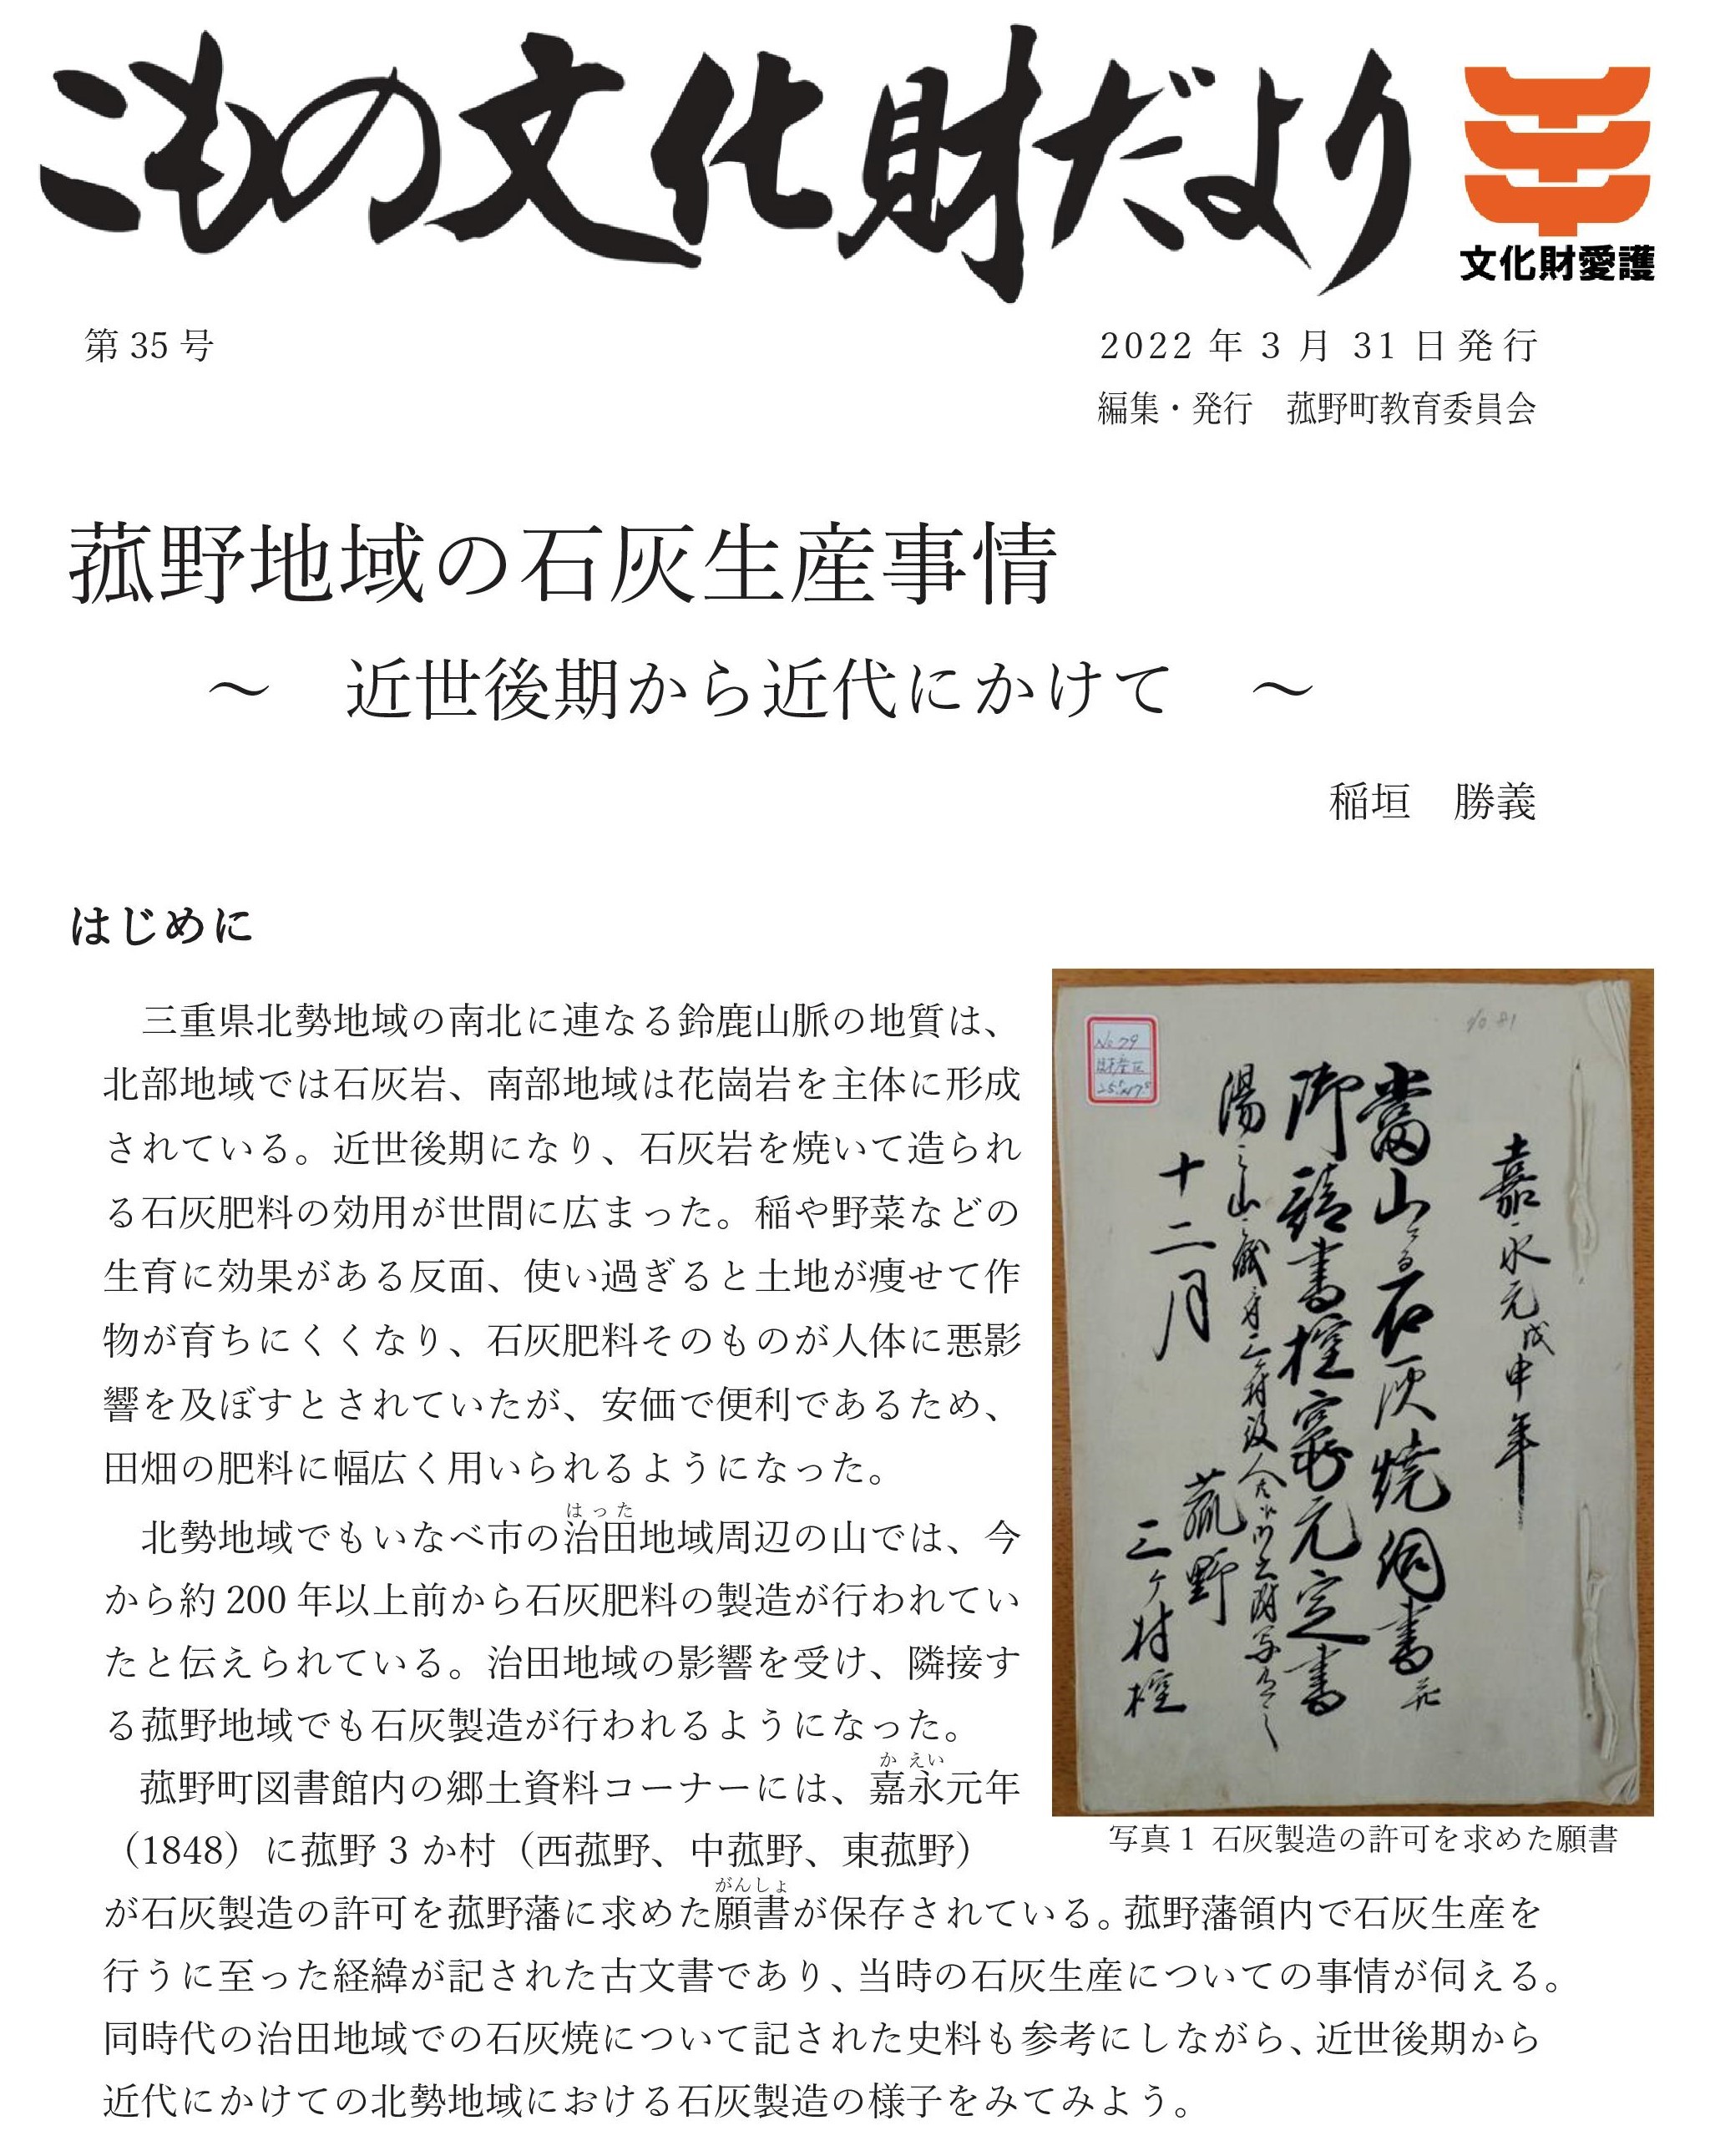 こもの文化財だより
文化財愛護
第 35 号
2022 年 3 月 31 日発行
編集・発行　菰野町教育委員会
菰野地域の石灰生産事情
～　近世後期から近代にかけて　～
稲垣　勝義
はじめに
三重県北勢地域の南北に連なる鈴鹿山脈の地質は、
北部地域では石灰岩、南部地域は花崗岩を主体に形成
されている。近世後期になり、石灰岩を焼いて造られ
る石灰肥料の効用が世間に広まった。稲や野菜などの
生育に効果がある反面、使い過ぎると土地が痩せて作
物が育ちにくくなり、石灰肥料そのものが人体に悪影
響を及ぼすとされていたが、安価で便利であるため、
田畑の肥料に幅広く用いられるようになった。
はった
北勢地域でもいなべ市の治田地域周辺の山では、今
から約 200 年以上前から石灰肥料の製造が行われてい
たと伝えられている。治田地域の影響を受け、隣接す
る菰野地域でも石灰製造が行われるようになった。
か えい
菰野町図書館内の郷土資料コーナーには、嘉永元年
（1848）に菰野 3 か村（西菰野、中菰野、東菰野）
がんしょ
が石灰製造の許可を菰野藩に求めた願書が保存されている。菰野藩領内で石灰生産を
行うに至った経緯が記された古文書であり、当時の石灰生産についての事情が伺える。
同時代の治田地域での石灰焼について記された史料も参考にしながら、近世後期から
近代にかけての北勢地域における石灰製造の様子をみてみよう。
No 79
嘉永元戊申年
當山ニ而石灰焼伺書
御請書控竈元定書
十二月
菰野
三ヶ村控
写真 1 石灰製造の許可を求めた願書